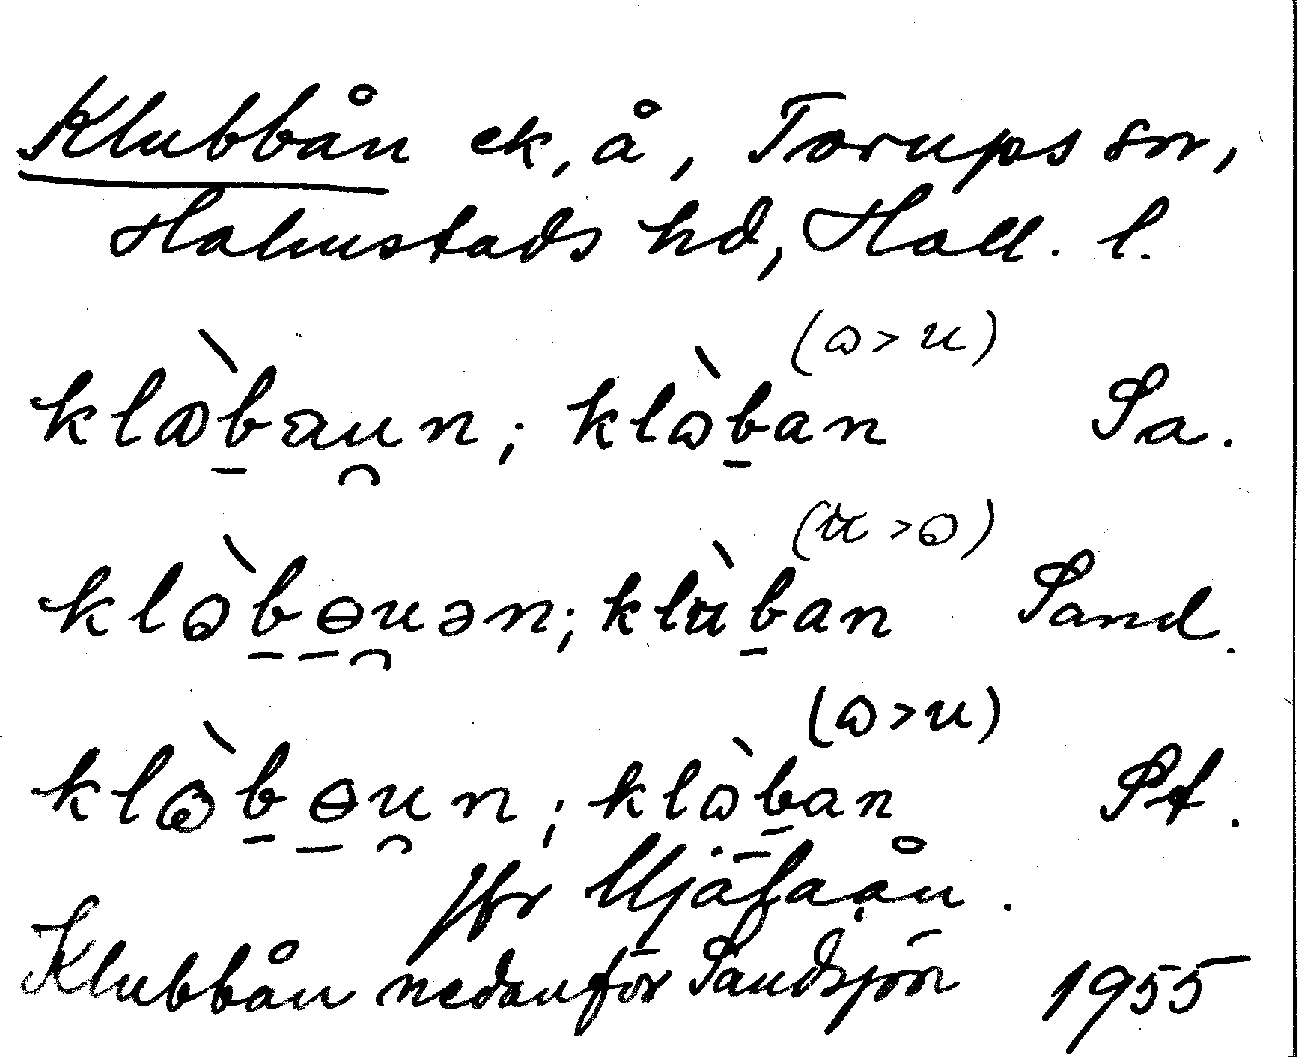 Klubbån ek, å, Torups sn,
Halmstads hd, Hall. l.
(ɷ > u)
klɷ̀baun; klɷ̀ban Sa.
(u > ɷ)
klɷ̀bɵuən; klùban Sand.
(ɷ > u)
klɷ̀bɵun; klɷ̀ban St.
Jfr
Klubbån nedanför Sandsjön 1955